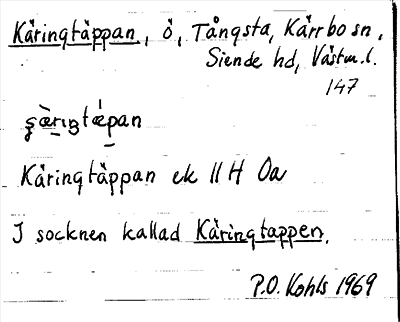 Käringtäppan, ö, Tångsta, Kärrbo sn,
Siende hd, Västm.l.
147
Käringtäppan ek 11 H Oa
I socknen kallad Käringtappen.
P.O. Kohls 1969